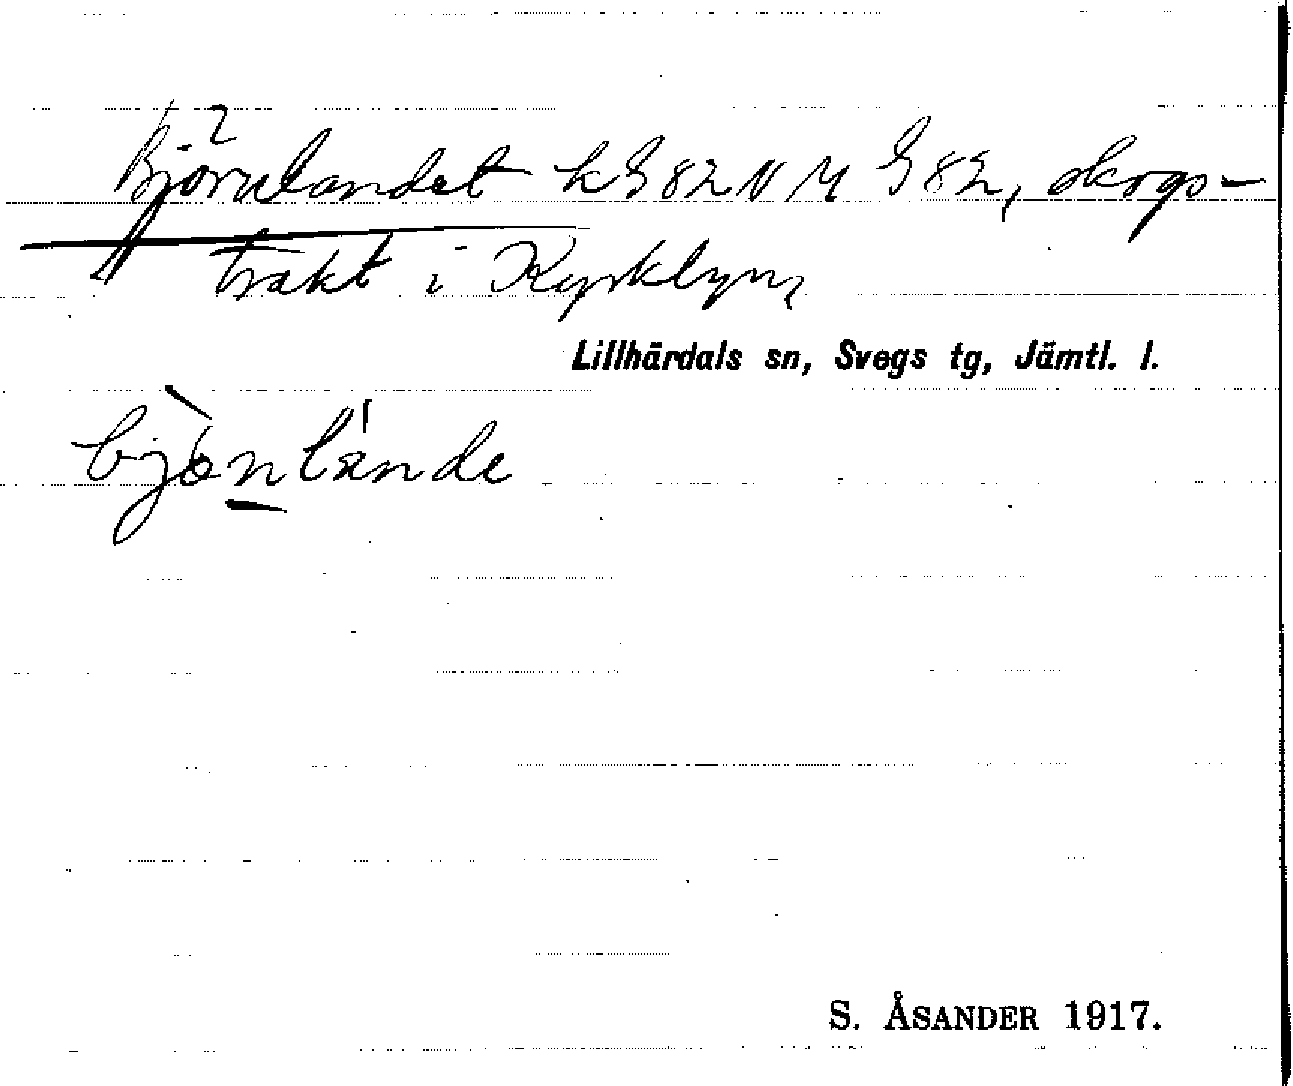 Björnlandet k G 82 N M G 82, skogs-
trakt i Kyrkbyn,
Lillhärdals sn, Svegs tg, Jämtl. l.
bjònlánde
S. ÅSANDER 1917.